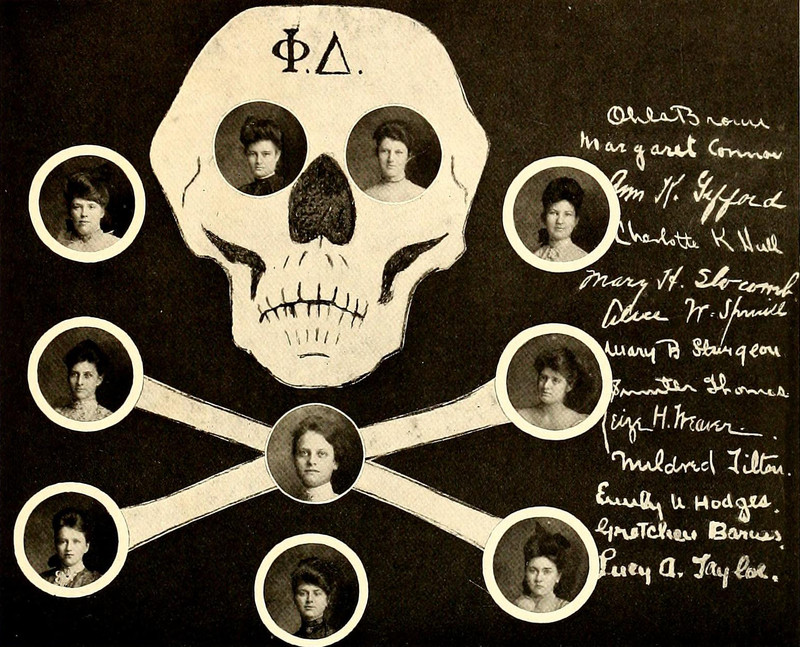 Φ.Δ.
Ohla Brown
Margaret Connor
Ann K. Gifford
Charlotte K Hull
Mary H. Slocomb
Alice W. Spruill
Mary B Sturgeon
Thomas
H. Weaver.
Mildred Tilton.
Emily N. Hodges.
Gretchen Barnes.
Lucy A. Taylor.